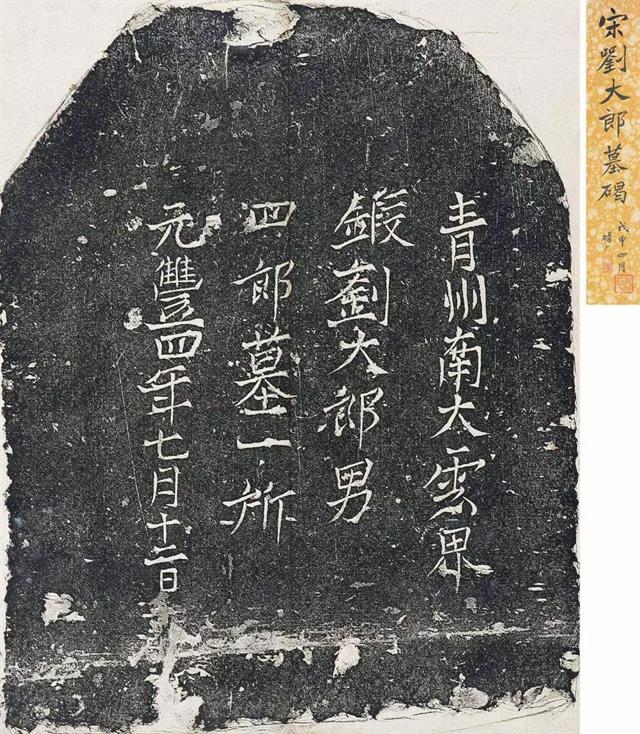 宋劉大郎墓碣
戊申四月
青州南大雲界
鍛劉大郎男
四郎墓一所
元豐四年七月十二日